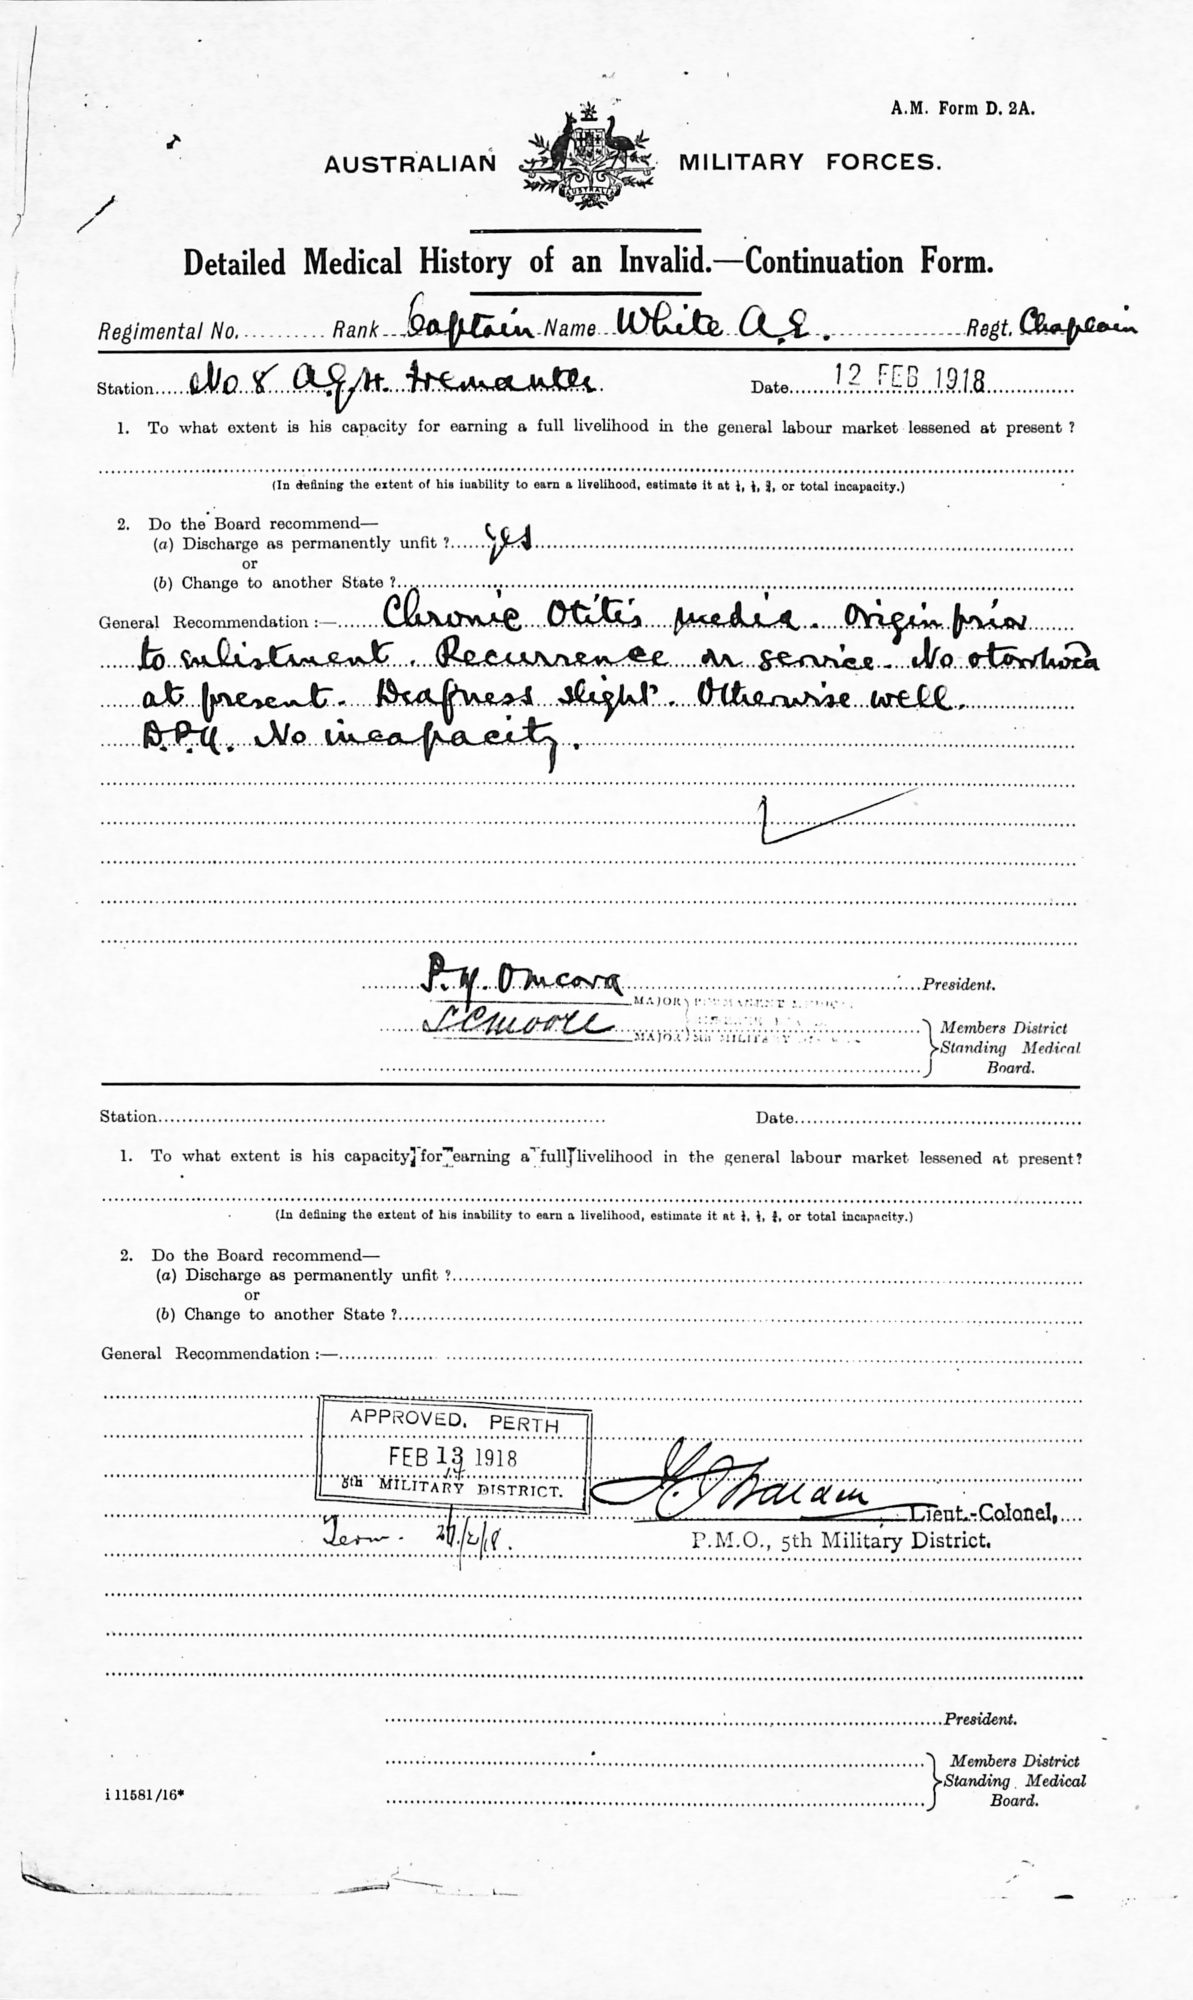 A.M. Form D. 2A.
AUSTRALIAN MILITARY FORCES.
AUSTRALIA
Detailed Medical History of an Invalid.—Continuation Form.
Regimental No. Rank Captain Name White A.E. Regt. Chaplain
Station No 8 A.G.H. Fremantle Date 12 FEB 1918
1. To what extent is his capacity for earning a full livelihood in the general labour market lessened at present ?
(In defining the extent of his inability to earn a livelihood, estimate it at ¼, ½, ¾, or total incapacity.)
2. Do the Board recommend—
(a) Discharge as permanently unfit ? Yes
or
(b) Change to another State ?
General Recommendation :— Chronic Otitis media. Origin prior
to enlistment. Recurrence on service. No otorrhoea
at present. Deafness slight. Otherwise well.
D.P.U. No incapacity.
President.
MAJOR PERMANENT MEDICAL
S C Moore
MAJOR MILITARY
Members District
Standing Medical
Board.
Station Date
1. To what extent is his capacity for earning a full livelihood in the general labour market lessened at present?
(In defining the extent of his inability to earn a livelihood, estimate it at ¼, ½, ¾, or total incapacity.)
2. Do the Board recommend—
(a) Discharge as permanently unfit ?
or
(b) Change to another State ?
General Recommendation :—
APPROVED. PERTH
FEB 13 1918
5th MILITARY DISTRICT.
Lieut.-Colonel,
P.M.O., 5th Military District.
Term. /2/18.
President.
Members District
Standing Medical
Board.
i 11581/16*